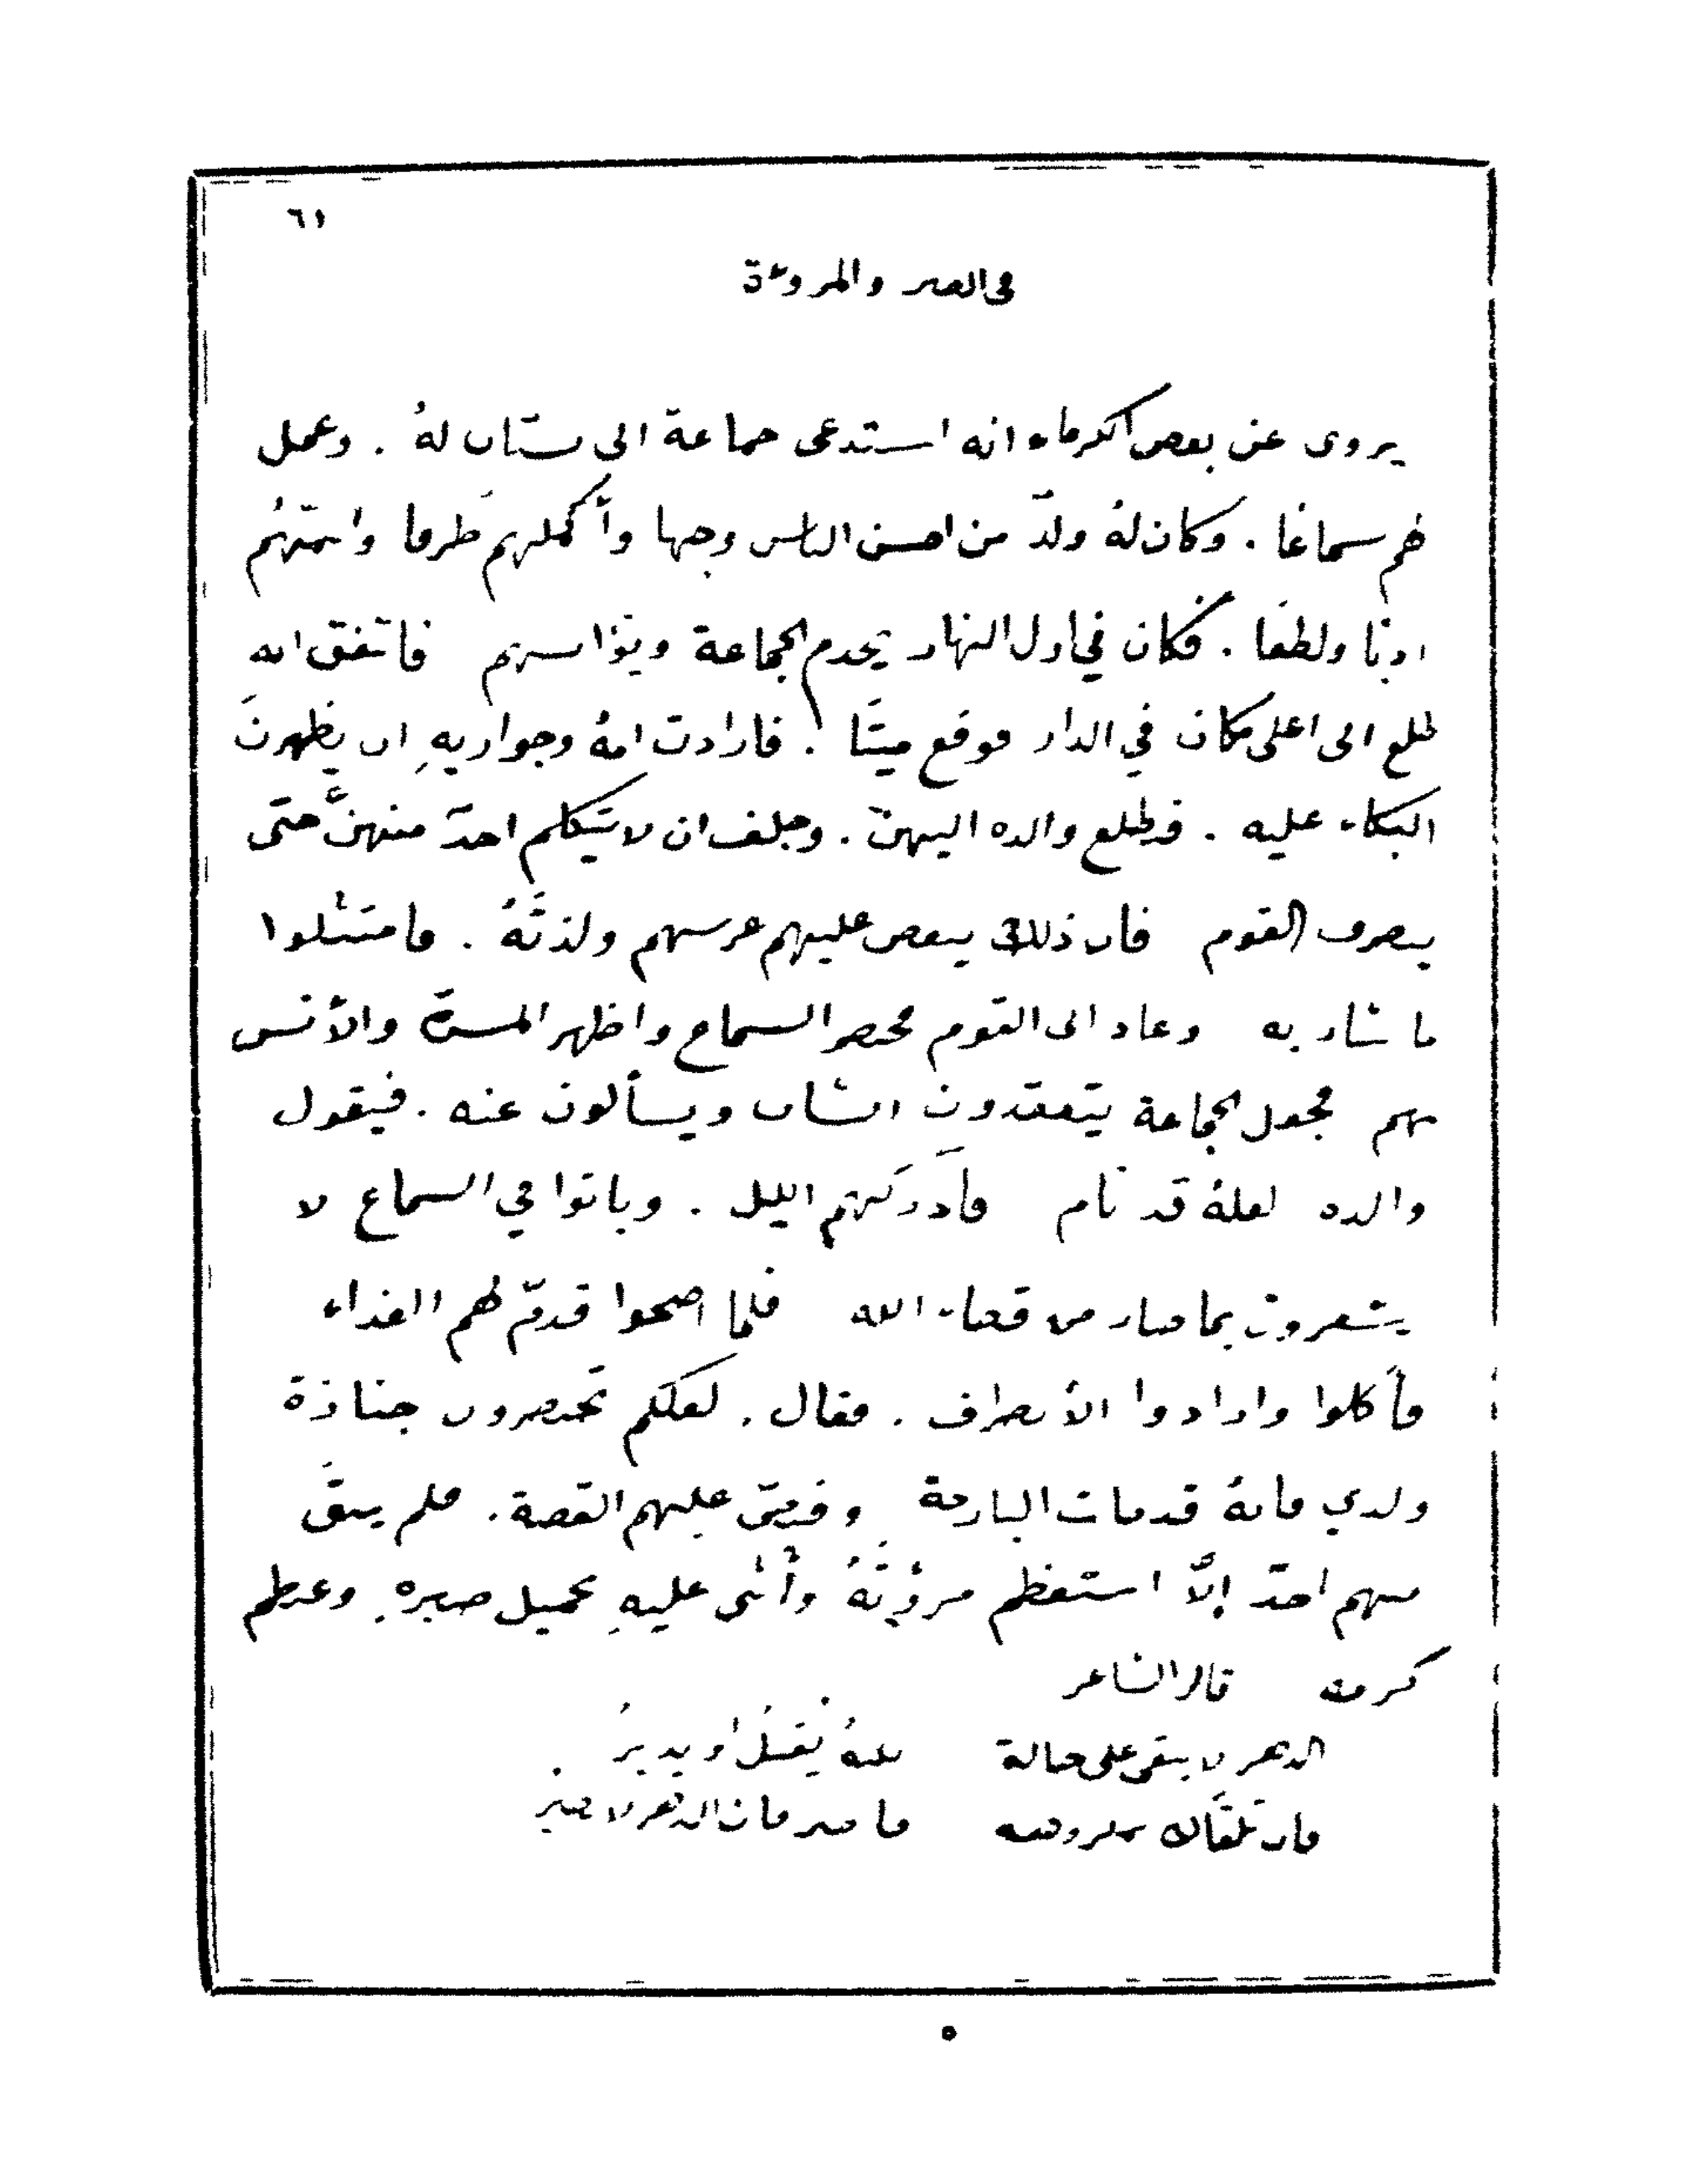 ٦١
في الصبر والمروءة
يروى عن بعض الكرماء انه استدعى جماعة الى بستان لهُ . وعمل
لهم سماعًا . وكان لهُ ولدٌ من احسن الناس وجها وأكملهم ظرفا واتمّهُم
ادبًا ولطفا . فكان في اول النهار يخدم الجماعة ويؤانسهم فاتفق انه
طلع الى اعلى مكان في الدار فوقع ميتًا . فارادت امهُ وجواريهِ ان يظهرنَ
البكاء عليه . فطلع والده اليهنّ . وحلف ان لا يتكلم احدٌ منهنَّ حتى
ينصرف القوم فان ذلك ينغص عليهم عرسهم ولذتَهُ . فامتثلوا
ما شار به وعاد الى القوم فحضر السماع واظهر المسرّة والأنس
بهم فجعل الجماعة يتفقدون الشاب ويسألون عنه . فيقول
والده لعلهُ قد نام فأدركهم الليل . وباتوا في السماع لا
يشعرون بما صار من قضاء الله فلما اصبحوا قدمّ لهم الغداء
فأكلوا وارادوا الأنصراف . فقال . لعلكم تحضرون جنازة
ولدي فانهُ قد مات البارحة وقصّ عليهم القصة . فلم يبقَ
منهم احدٌ إلَّا استعظم مروُتَهُ وأثنى عليهِ بجميل صبرهِ وعظم
كرمه قال الشاعر
الدهر لا يبقى على حالة لكنهُ يُقبلُ او يدبرُ .
فان تلقّاك بمكروهه فاصبر فان الدهر لا يصبر